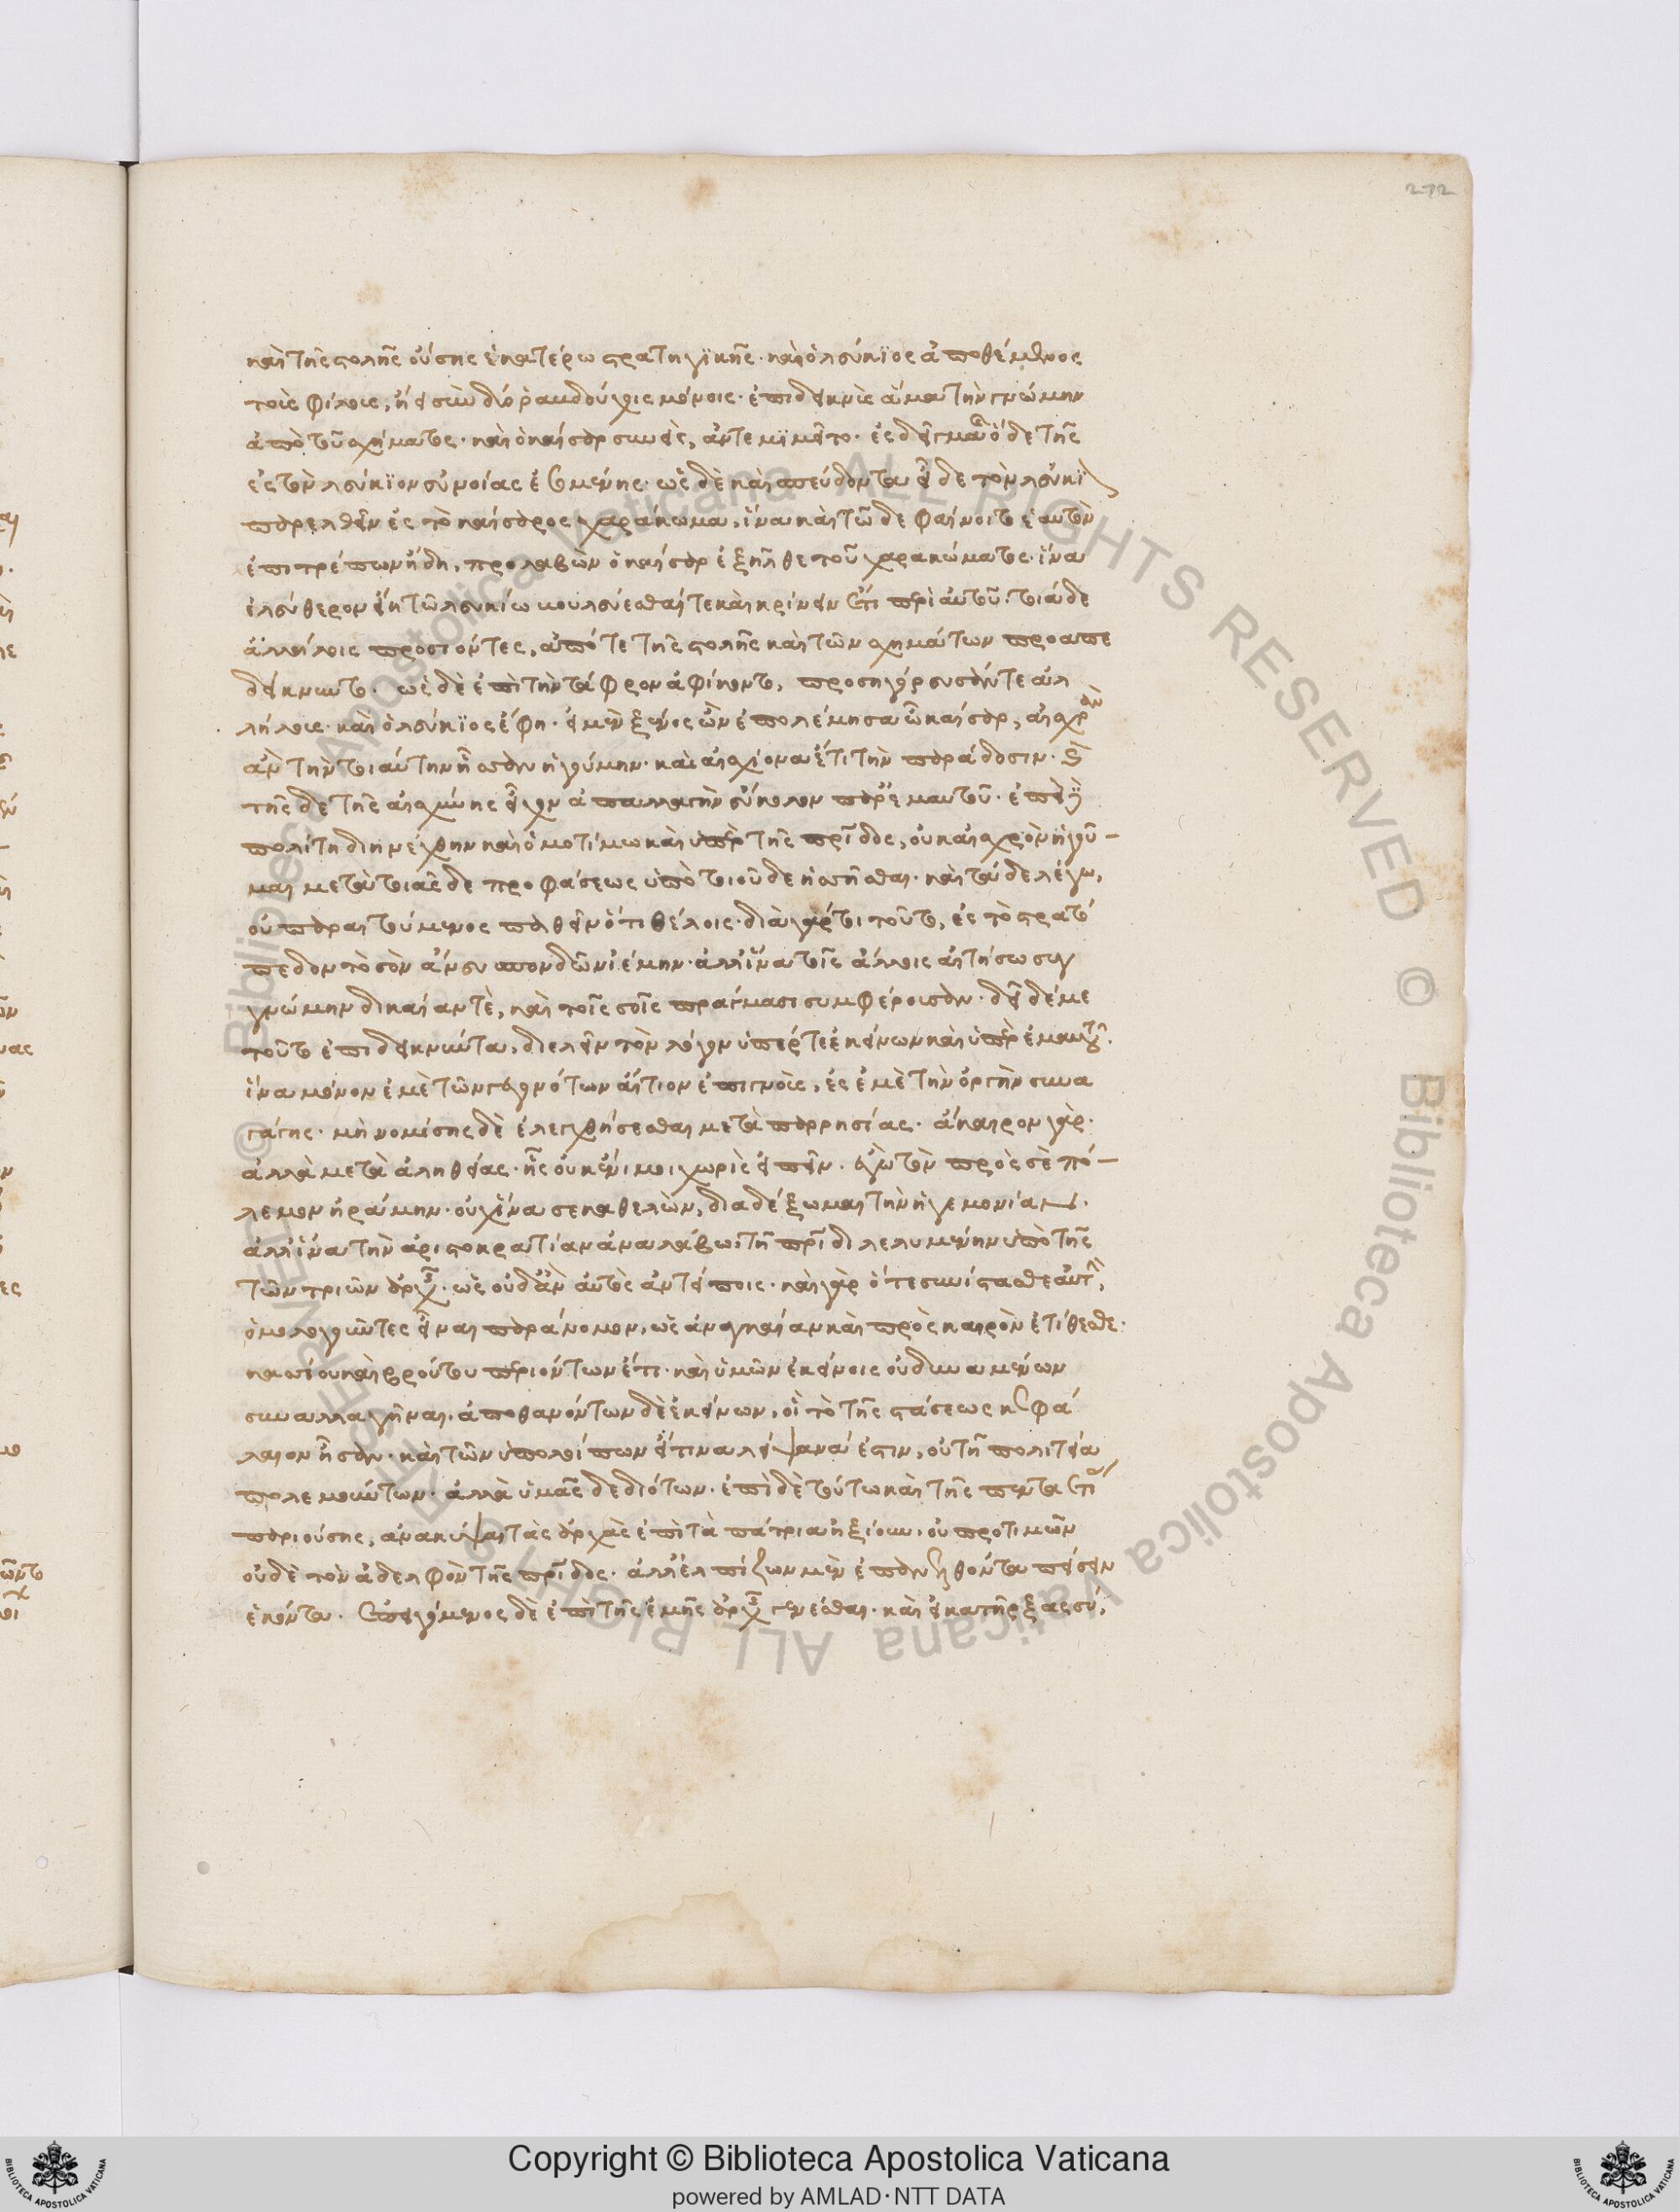 272
καὶ τῆς στολῆς οὔσης ἑκατέρω στρατηγϊκῆς. καὶ ὁ λεύκϊος ἀποθέμενος
τοὺς φίλους, ἤει σὺν δύο ῥαβδούχοις μόνοις. ἐπιδεικνὺς ἅμα τὴν γνώμην
ἀπὸ τοῦ σχήματος. καὶ ὁ καίσαρ συνεὶς, ἀντεμϊμεῖτο. ἐς δεῖγμα καὶ ὅδε τῆς
ἐς τὸν λεύκϊον εὐνοίας ἐσομένης. ὡς δὲ καὶ σπεύδοντα εἶδε τὸν λεύκϊον
παρελθεῖν ἐς τὸ καίσαρος χαράκωμα, ἵνα καὶ τῶδε φαίνοιτο ἑαυτὸν
ἐπιτρέπων ἤδη, προλαβὼν ὁ καίσαρ ἐξῆλθε τοῦ χαρακώματος. ἵνα
ἐλεύθερον εἴη τῶ λευκίω βουλεύεσθαί τε καὶ κρίνειν ἔτι περὶ αὑτοῦ. τοιάδε
ἀλλήλοις προσιόντες, ἀπό τε τῆς στολῆς καὶ τῶν σχημάτων προαπε
δείκνυντο. ὡς δὲ ἐπὶ τὴν τάφρον ἀφίκοντο, προσηγόρευσάν τε ἀλ
λήλους. καὶ ὁ λεύκϊος ἔφη. εἰ μὲν ξένος ὢν ἐπολέμησα ὦ καίσαρ, αἰσχρὰν
ἂν τὴν τοιαύτην ἧσσαν ἡγούμην. καὶ αἰσχίονα ἔτι τὴν παράδοσιν. καὶ
τῆσδε τῆς αἰσχύνης εἶχον ἀπαλλαγὴν εὔκολον παρ' ἐμαυτοῦ. ἐπεὶ δὲ
πολίτη διηνέχθην καὶ ὁμοτίμω καὶ ὑπὲρ τῆς πατρίδος, οὐκ αἰσχρὸν ἡγοῦ-
μαι μετὰ τοιᾶσδε προφάσεως ὑπὸ τοιοῦδε ἡσσῆσθαι. καὶ τάδε λέγω,
οὐ παραιτούμενος παθεῖν ὅτι θέλοις. διὰ γάρ τοι τοῦτο, ἐς τὸ στρατό
πεδον τὸ σὸν ἄνευ σπονδῶν ἰέμην. ἀλλ' ἵνα τοῖς ἄλλοις αἰτήσω συγ
γνώμην δικαίαν τὲ, καὶ τοῖς σοῖς πράγμασι συμφέρουσαν. δεῖ δέ με
τοῦτο ἐπιδεικνύντα, διελεῖν τὸν λόγον ὑπέρ τε ἐκείνων καὶ ὑπὲρ ἐμαυτοῦ.
ἵνα μόνον ἐμὲ τῶν γεγονότων αἴτιον ἐπιγνοὺς, ἐς ἐμὲ τὴν ὀργὴν συνα
γάγης. μὴ νομίσης δὲ ἐλεγχθήσεσθαι μετὰ παρρησίας. ἄκαιρον γάρ.
ἀλλὰ μετὰ ἀληθείας. ἧς οὐκ ἔνι μοι χωρὶς εἰπεῖν. ἐγὼ τὸν πρὸς σὲ πό-
λεμον ἠράμην. οὐχ ἵνα σε καθελὼν, διαδέξωμαι τὴν ἡγεμονίαν.
ἀλλ' ἵνα τὴν ἀριστοκρατίαν ἀναλάβω, τῆ πατρίδι λελυμένην ὑπὸ τῆς
τῶν τριῶν ἀρχῆς. ὡς οὐδ' ἂν αὐτὸς ἀντείποις. καὶ γὰρ ὅτε συνίστασθε αὐτὴν,
ὁμολογοῦντες εἶναι παράνομον, ὡς ἀναγκαίαν καὶ πρὸς καιρὸν ἐτίθεσθε.
κασσίου καὶ βρούτου περιόντων ἔτι. καὶ ὑμῶν ἐκείνοις οὐ δυναμένων
συναλλαγῆναι. ἀποθανόντων δὲ ἐκείνων, οἳ τὸ τῆς στάσεως κεφά
λαιον ἦσαν. καὶ τῶν ὑπολοίπων εἴ τινα λείψανά ἐστιν, οὐ τῆ πολιτεία
πολεμούντων. ἀλλὰ ὑμᾶς δεδιότων. ἐπὶ δὲ τούτω καὶ τῆς πενταετίας
παριούσης, ἀνακύψαι τὰς ἀρχὰς ἐπὶ τὰ πάτρια ἠξίουν. οὐ προτιμῶν
οὐδὲ τὸν ἀδελφὸν τῆς πατρίδος. ἀλλ' ἐλπίζων μὲν ἐπανελθόντα πείσειν
ἑκόντα. ἐπειγόμενος δὲ ἐπὶ τῆς ἐμῆς ἀρχῆς γενέσθαι. καὶ εἰ κατῆρξας σύ,